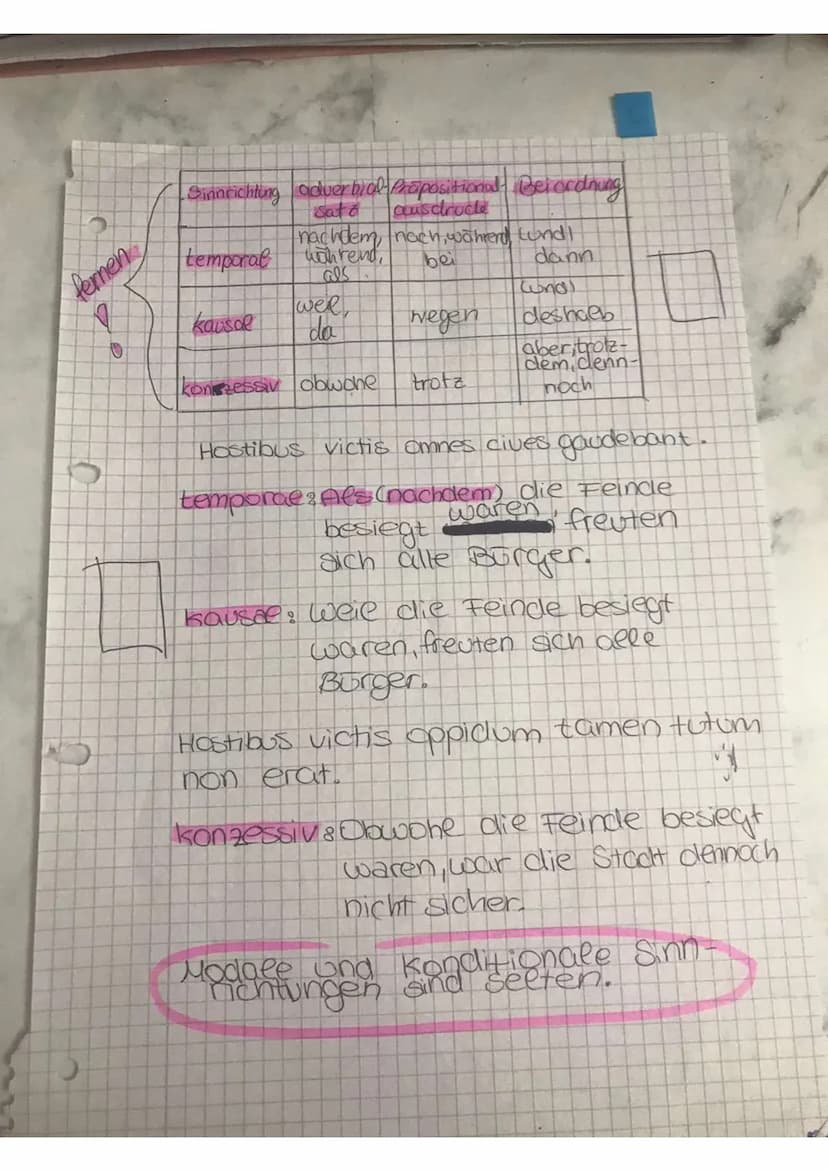 lernen!
Sinnrichtung adverbial- Präpositional- Beiordnung
satz ausdruck
temporal nachdem, nach, während, (und)
während, bei dann
als
kausal weil, wegen (und)
da deshalb
konzessiv obwohl trotz aber, trotz-
dem, denn-
noch
Hostibus victis omnes cives gaudebant.
temporal: Als (nachdem) die Feinde
besiegt waren, freuten
sich alle Bürger.
kausal: Weil die Feinde besiegt
waren, freuten sich alle
Bürger.
Hostibus victis oppidum tamen tutum
non erat.
konzessiv: Obwohl die Feinde besiegt
waren, war die Stadt dennoch
nicht sicher.
Modale und Konditionale Sinn-
richtungen sind selten.